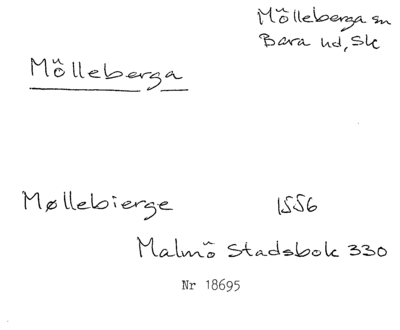 Mölleberga sn
Bara hd, Sk
Mölleberga
Møllebierge 1556
Malmö Stadsbok 330
Nr 18695